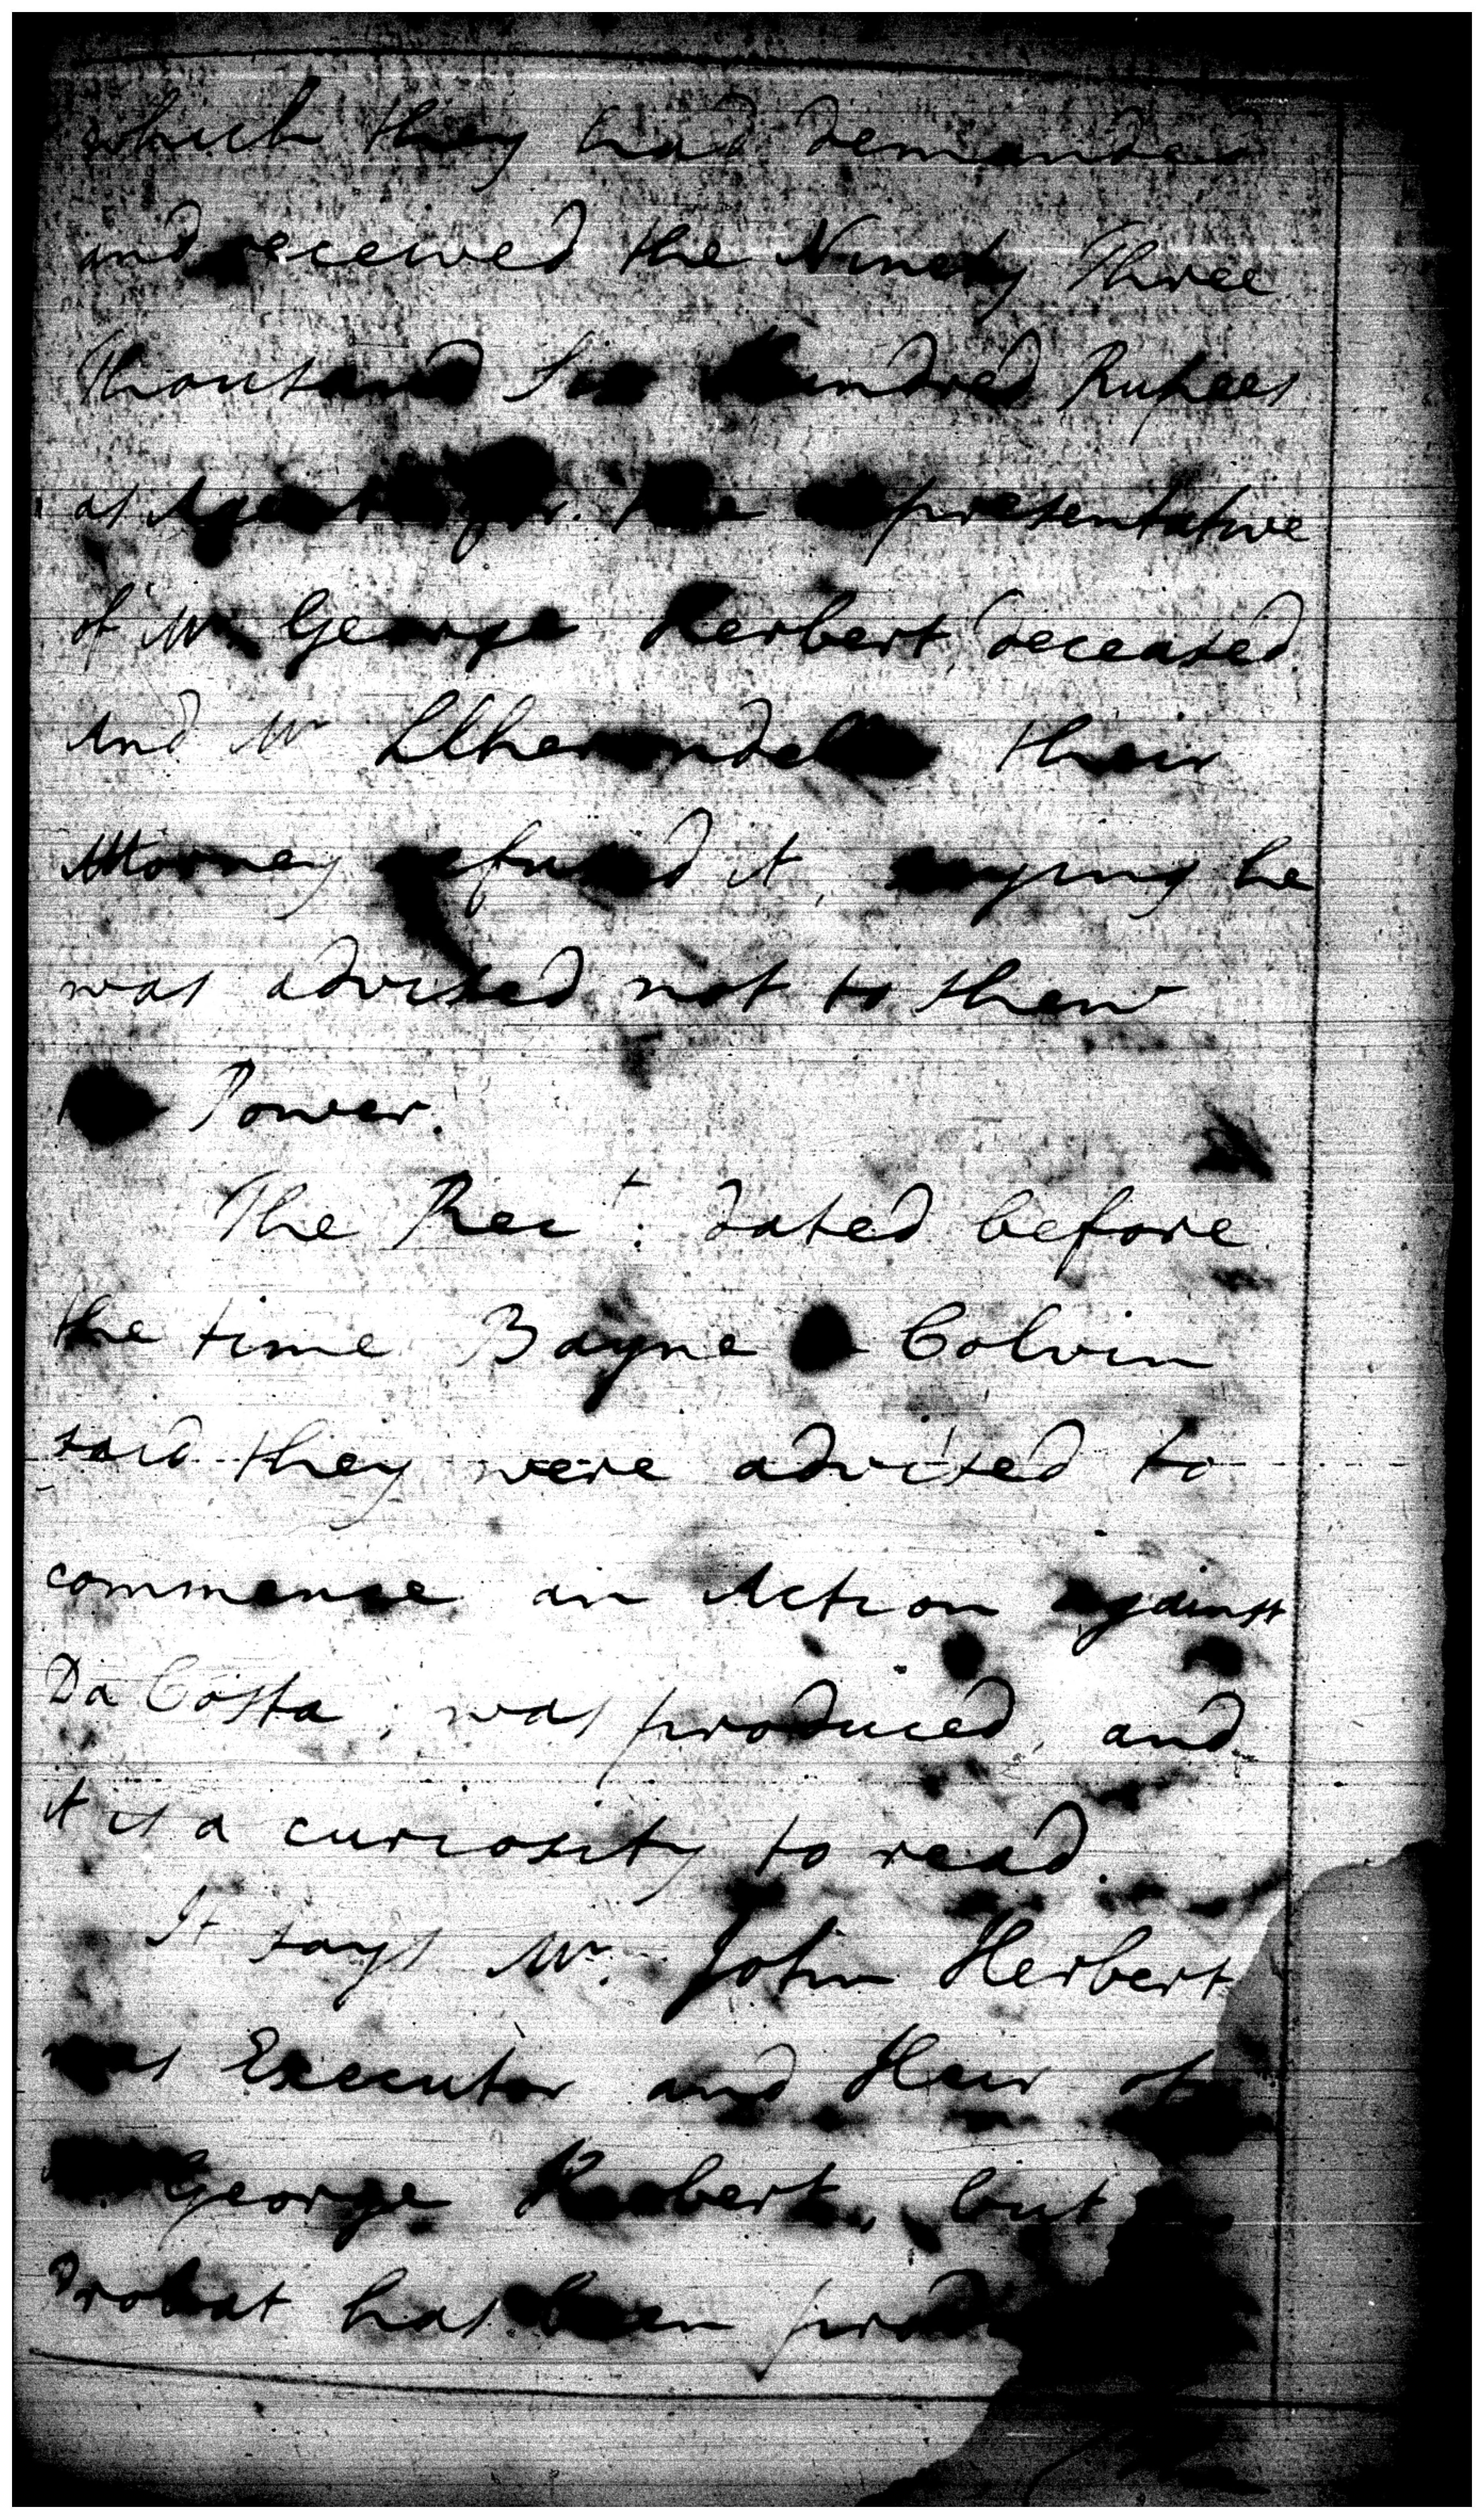 which they had demanded
and received the Ninety Three
Thousand Six Hundred Rupees
as Agents for the representative
of Mr George Herbert deceased
And Mr their
Attorney refused it, saying he
was advised not to shew
Power.
The Rect. dated before
the time Bayne Colvin
said they were advised to
commence an Action against
Da Costa, was produced, and
it is a curiosity to read.
It says Mr. John Herbert
was Executor and Heir of
George Herbert, but
Probat has been